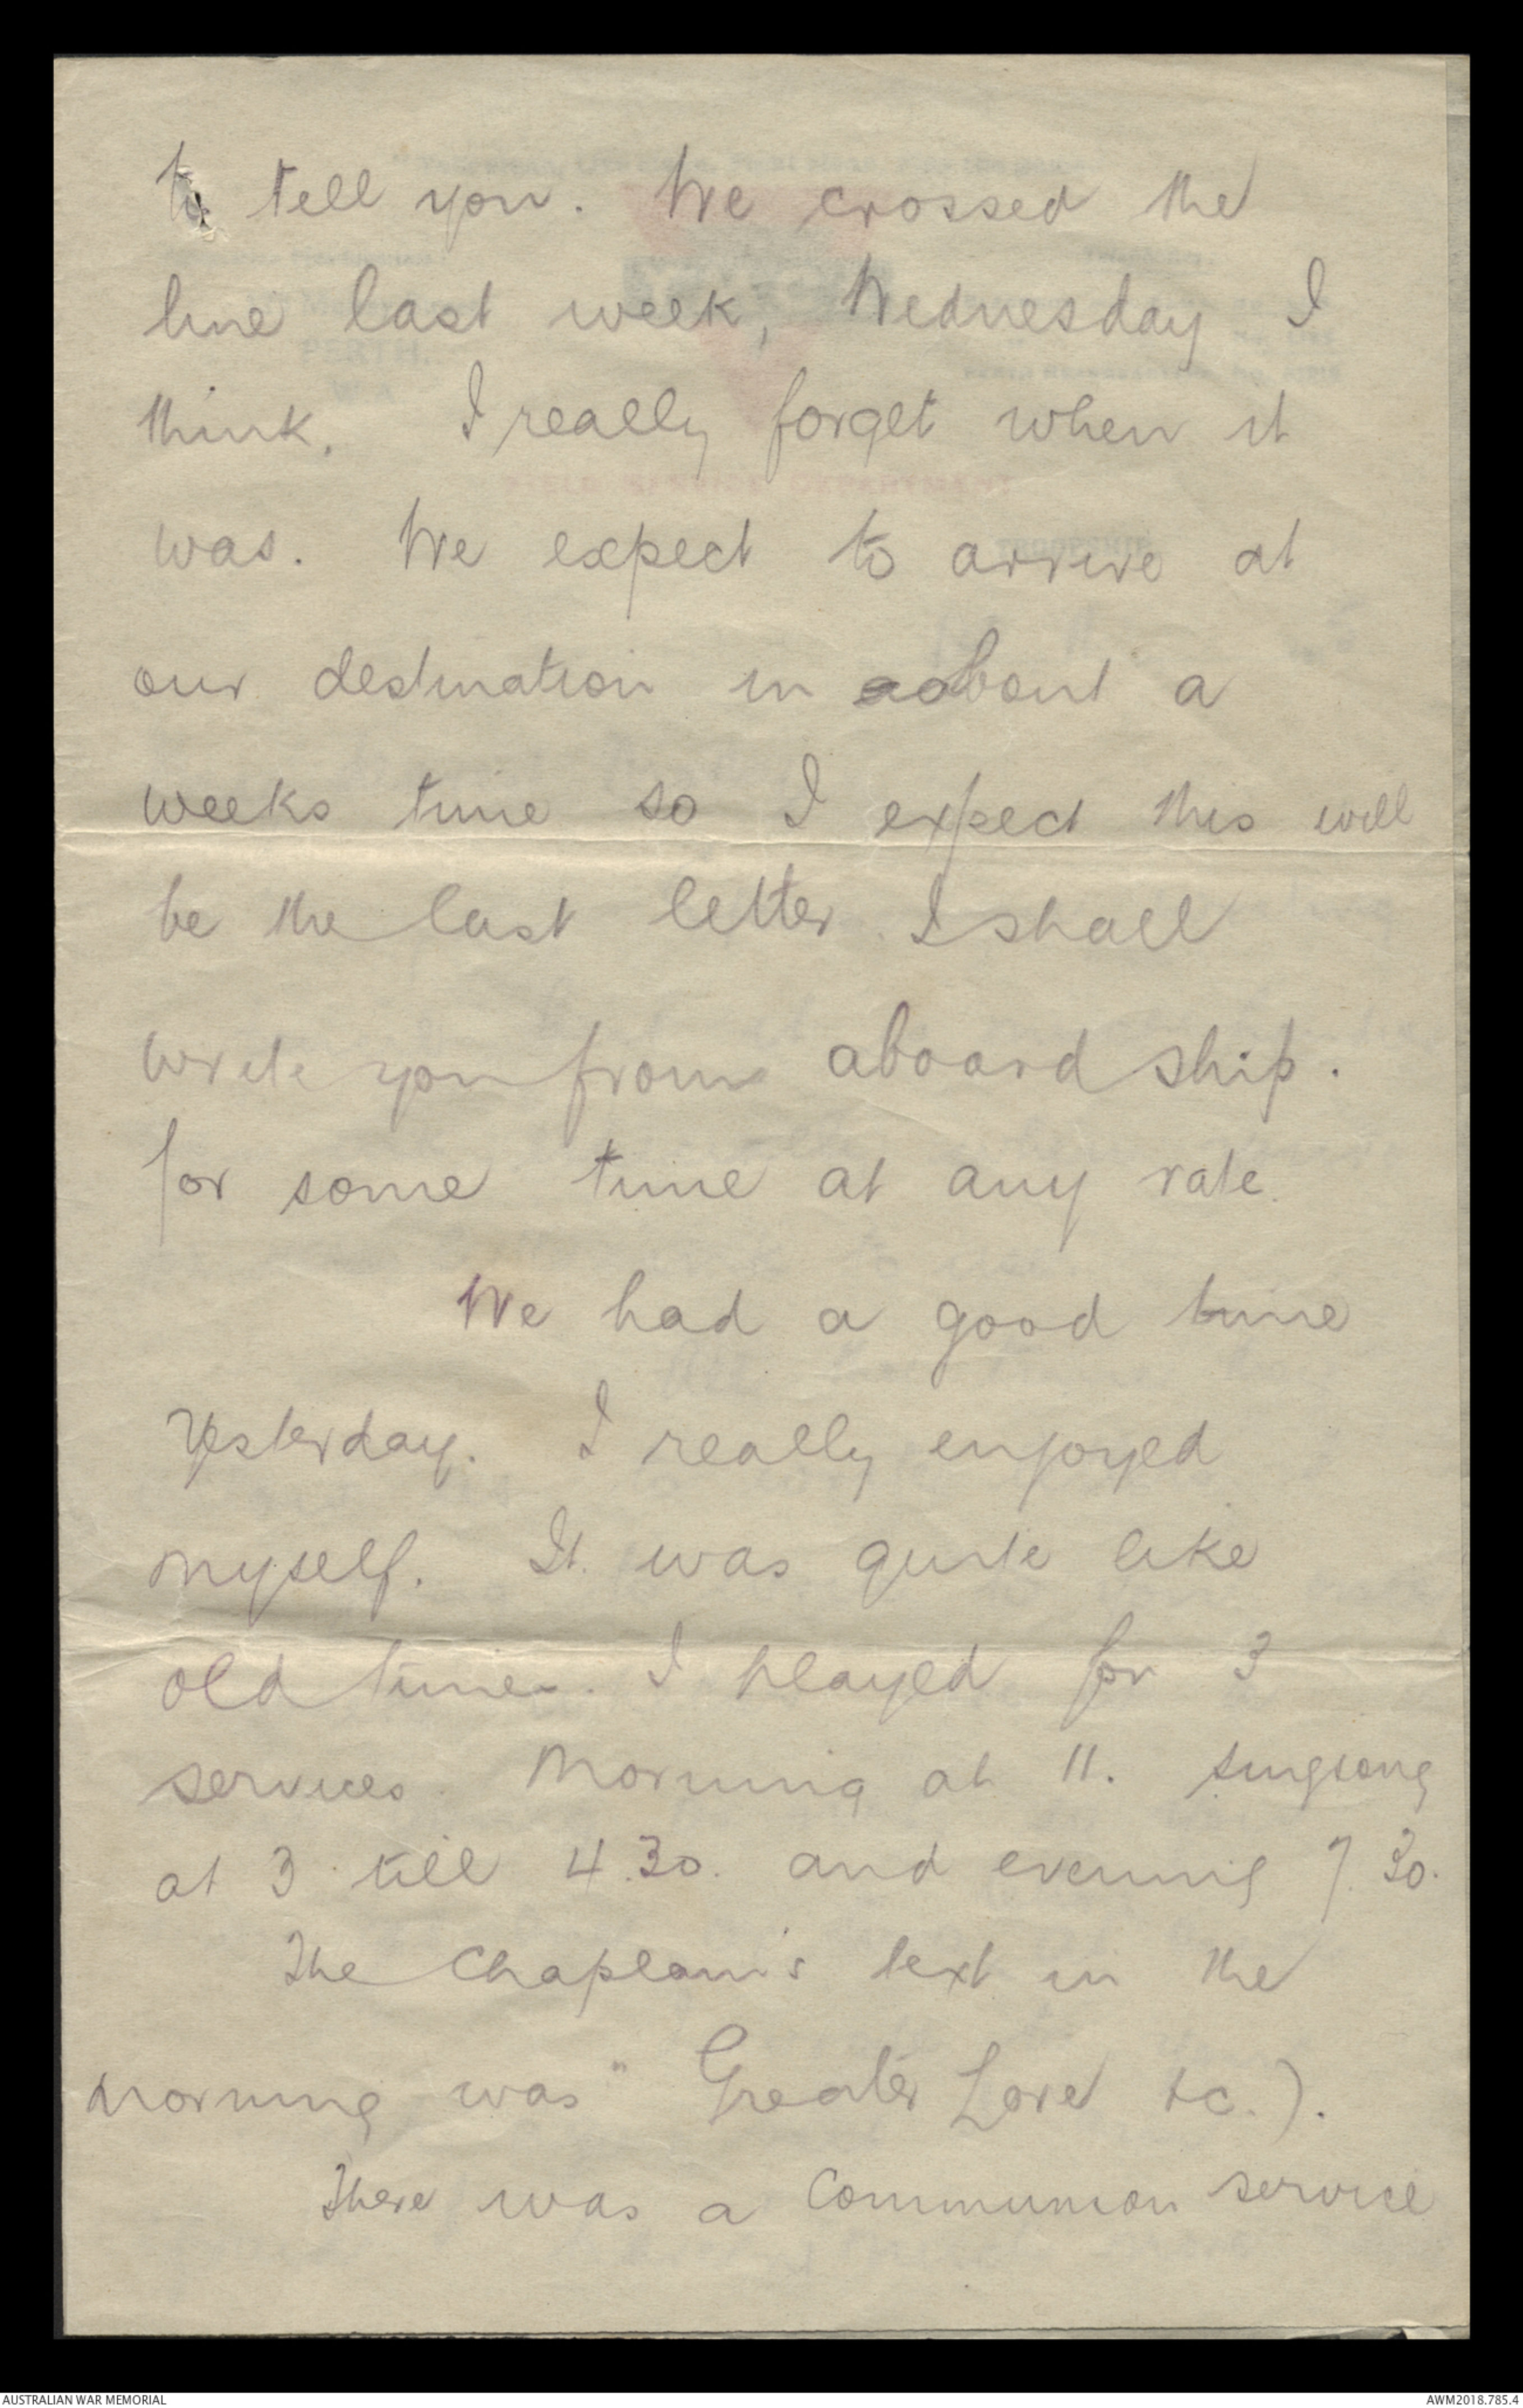 to tell you. We crossed the
line last week, Wednesday I
think. I really forget when it
was. We expect to arrive at
our destination in about a
weeks time so I expect this will
be the last letter I shall
write you from aboard ship.
for some time at any rate.
We had a good time
Yesterday. I really enjoyed
myself. It was quite like
old times. I played for 3
services. Morning at 11. singsong
at 3 till 4.30. and evening 7.30.
The Chaplain's text in the
morning was "Greater Love &c.).
There was a Communion service
AUSTRALIAN WAR MEMORIAL
AWM2018.785.4